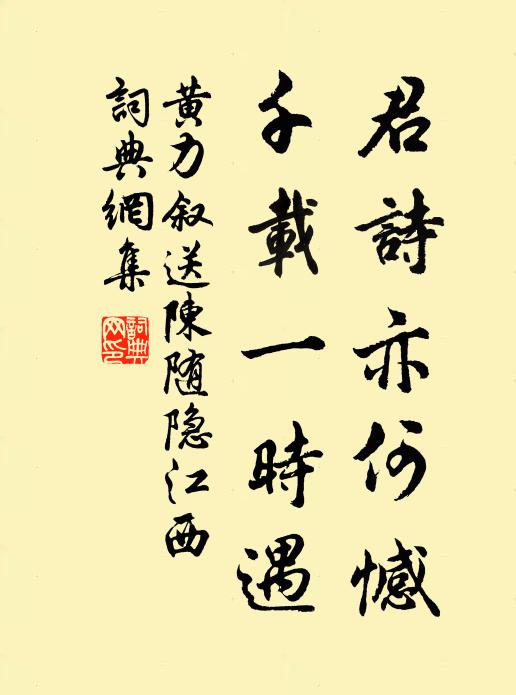 君詩亦何憾
千載一時遇
黄力叙送陳随隐江西
詞典網集
詞典网印